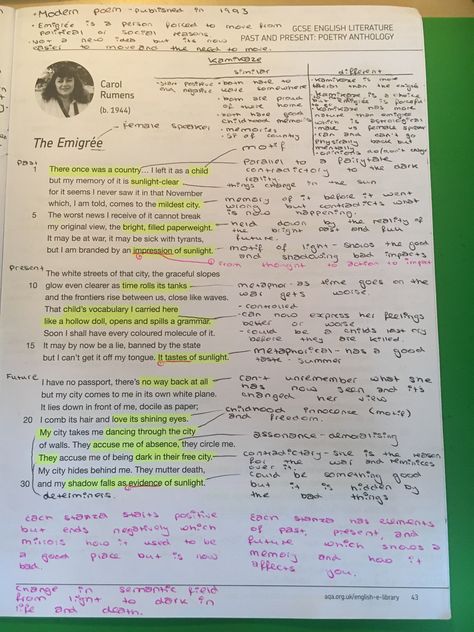 • Modern poem - published in 1993
• Emigrée is a person forced to move from
political or social reasons
• Not a new idea but its now
easier to move and the need to move.
GCSE ENGLISH LITERATURE
PAST AND PRESENT: POETRY ANTHOLOGY
Kamikaze
similar
different
Carol
Rumens
(b. 1944)
- start positive
end negative
• both have to
were somewhere
• both are proud
of their home
• both have good
childhood memories
• memories
• st of country
• Kamikaze is more
• Kamikaze is a choice
but emigree is forceful
• Kamikaze has more
nature than emigree
• male vs female speaker
• can and can't go
physically back but
mentally
- Female speaker
The Emigrée
motif
Past
1 There once was a country… I left it as a child
but my memory of it is sunlight-clear
for it seems I never saw it in that November
which, I am told, comes to the mildest city.
5 The worst news I receive of it cannot break
my original view, the bright, filled paperweight.
It may be at war, it may be sick with tyrants,
but I am branded by an impression of sunlight.
parallel to fairytale
contradictory to the dark
reality
things change in the sun
memory of it before it went
wrong but contradicts what
is now happening.
held down by the reality of
the bright past and full
future.
motif of light - shows the good
and shadowing bad impacts
from thought to action to impact
Present
The white streets of that city, the graceful slopes
10 glow even clearer as time rolls its tanks
and the frontiers rise between us, close like waves.
That child's vocabulary I carried here
like a hollow doll, opens and spills a grammar.
Soon I shall have every coloured molecule of it.
15 It may by now be a lie, banned by the state
but I can't get it off my tongue. It tastes of sunlight.
metaphor - as time goes on the
war gets worse.
- controlled
- can now express her feelings
better or worse
- could be a childs last cry
before they are killed.
metaphorical - has a good
taste - summer
Future
I have no passport, there's no way back at all
but my city comes to me in its own white plane.
It lies down in front of me, docile as paper;
20 I comb its hair and love its shining eyes.
My city takes me dancing through the city
of walls. They accuse me of absence, they circle me.
They accuse me of being dark in their free city.
My city hides behind me. They mutter death,
30 and my shadow falls as evidence of sunlight.
determiners.
can't unremember what she
has now seen and its
changed her view
childhood innocence (motif)
and freedom.
assonance - demoralising
contradictary - she is the reason
for the war and reminices
over it
could be something good
but it is hidden by
the bad things
Each stanza starts positive
but ends negatively which
mirrors how it used to be
a good place but is now
bad.
Each stanza has elements
of past, present, and
future which shows a
memory and how it
affects you.
Change in semantic field
from light to dark in
life and death.
aqa.org.uk/english-e-library 43